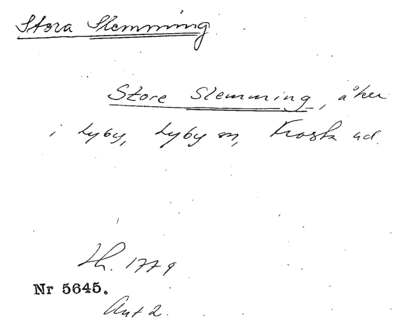 Stora Slemming
Store Slemming, åker
i Lyby, Lyby sn, Frosta hd.
Lh. 1779
Nr 5645.
Ant 2.